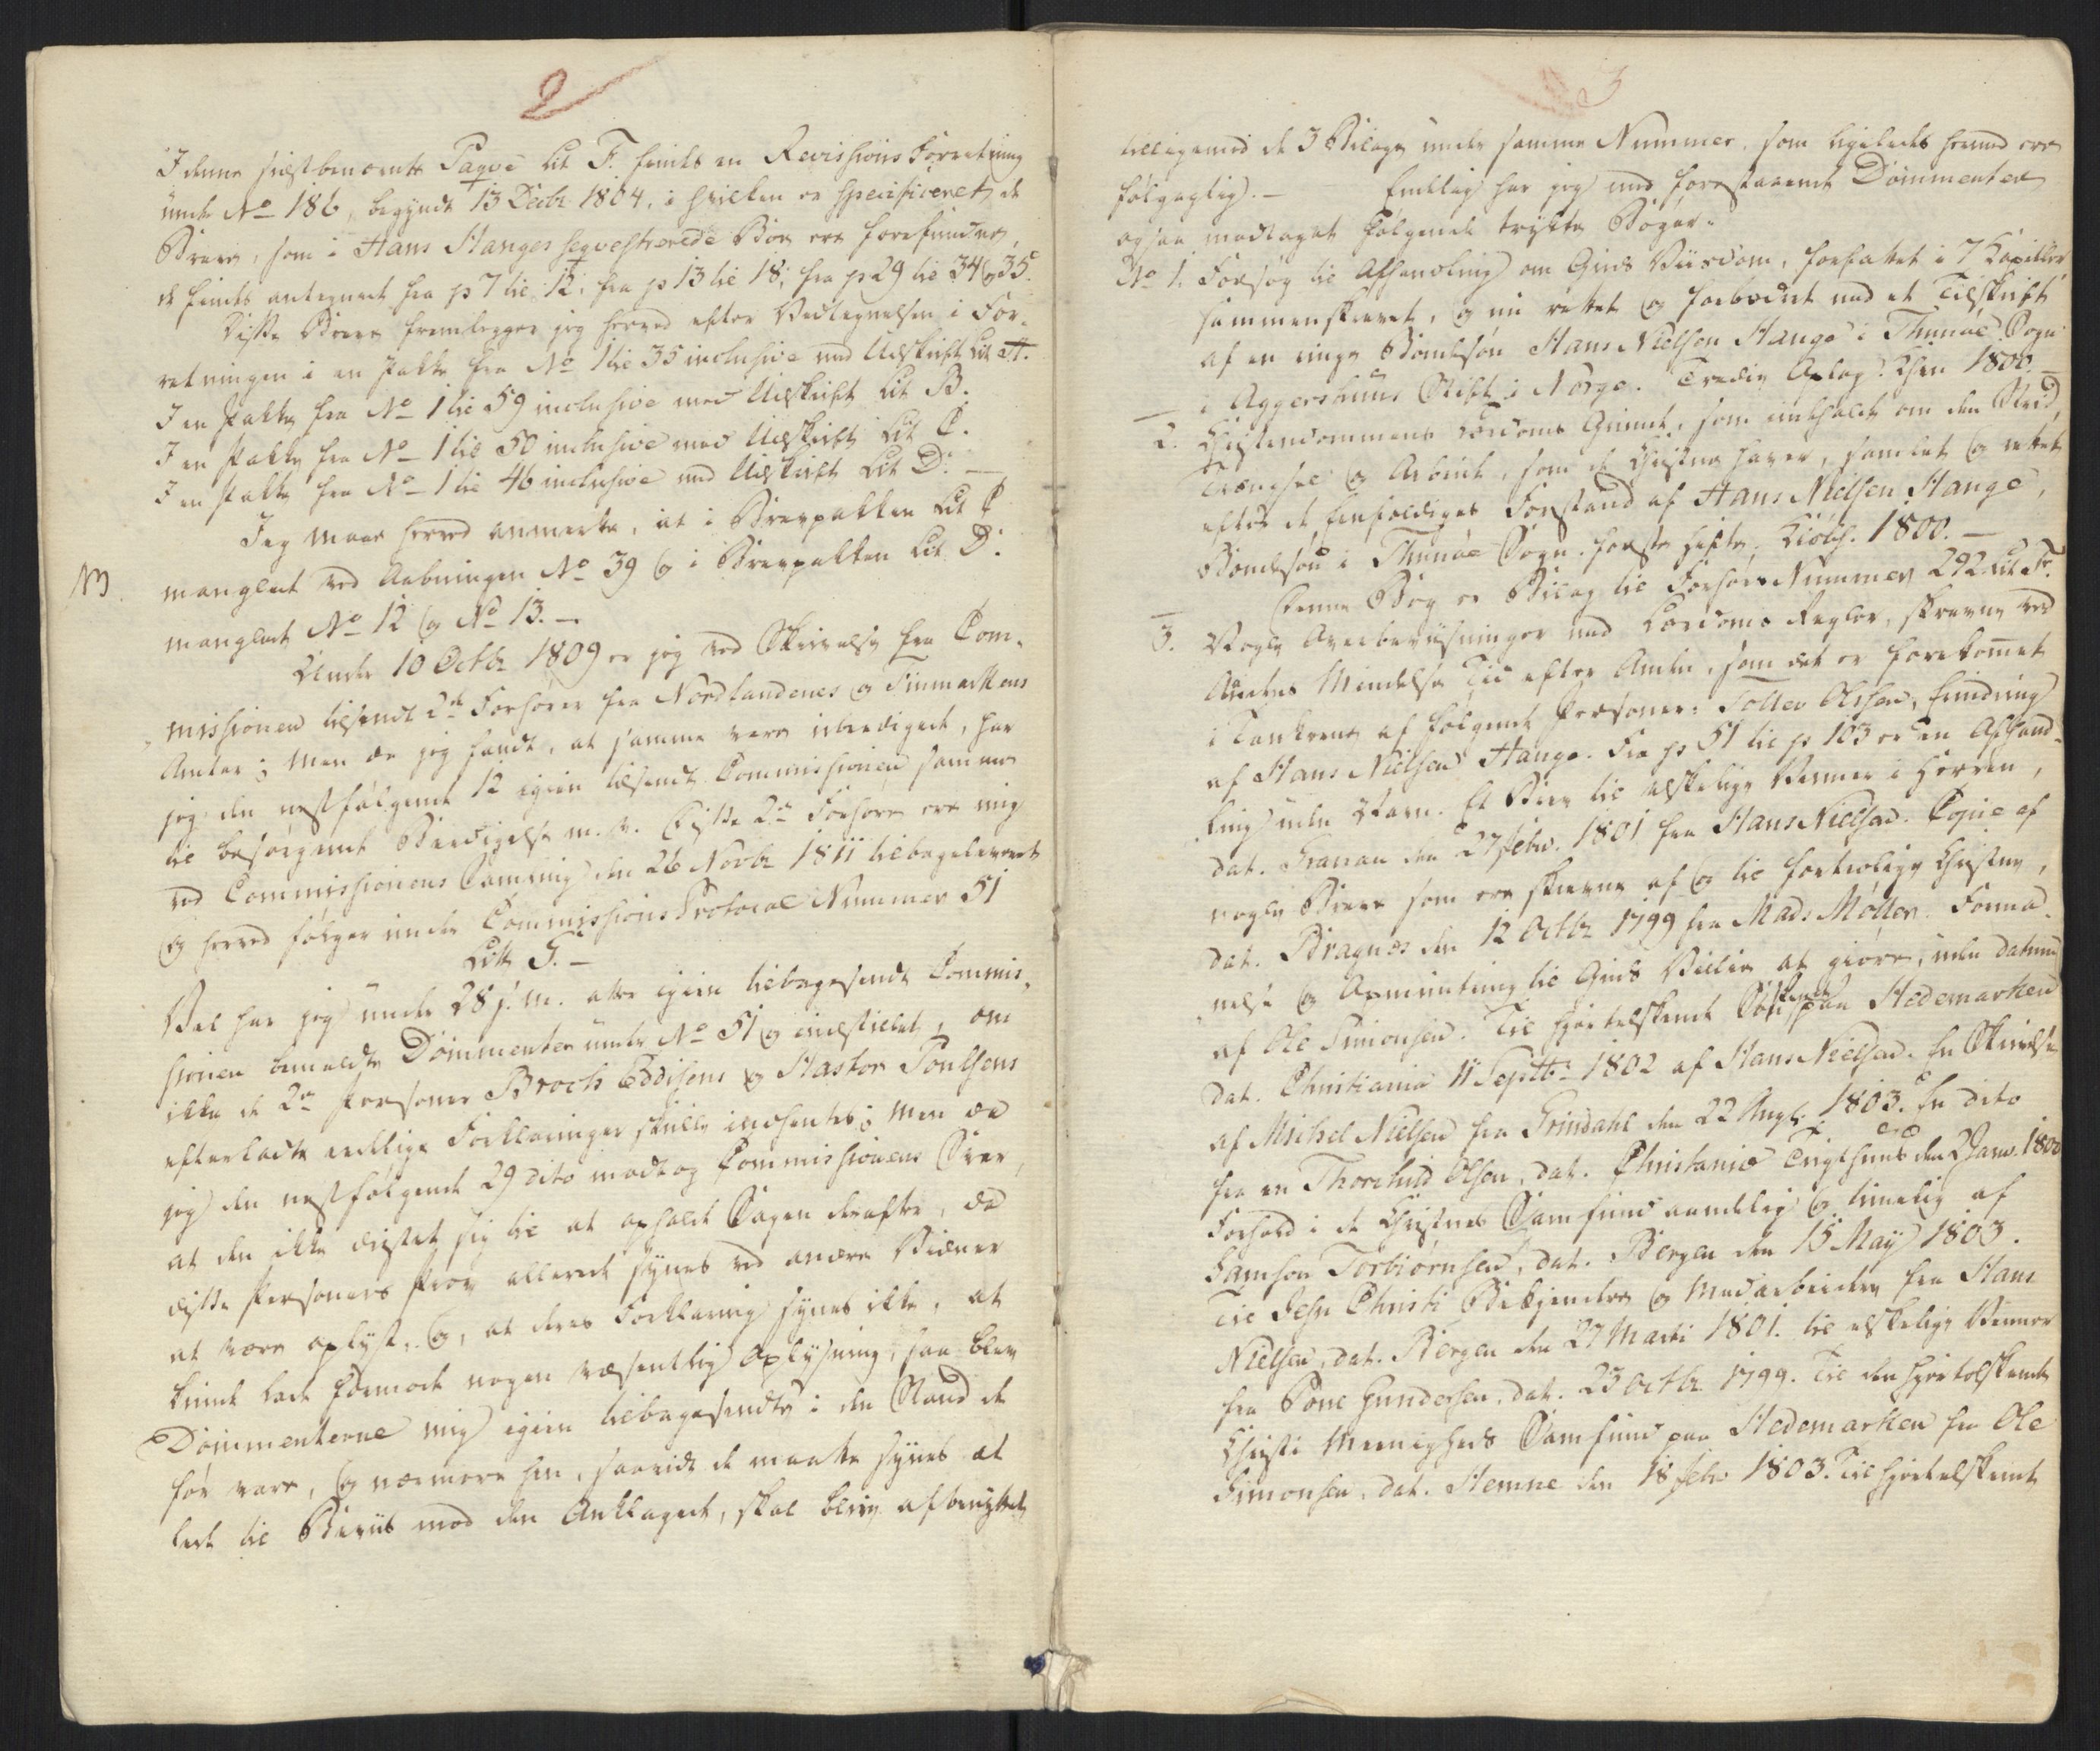 2
I denne sidstbenævnte Paqve Lit F. findes en Revisions Forretning
under No 186, begyndt 13 Decbr 1804, i hvilken er specificeret de
Breve, som i Hans Hanges seqvestrerede Boe ere forefundne,
de findes antegnede fra p 7 til 12, fra p 13 til 18, fra p 29 til 34 og 35.
Disse Breve fremlegger jeg herved efter Vedtegnelsen i For-
retningen i en Pakke fra No 1 til 35 inclusive med Udskrift Lit A.
I en Pakke fra No 1 til 59 inclusive med Udskrift Lit B.
I en Pakke fra No 1 til 50 inclusive med Udskrift Lit C.
I en Pakke fra No 1 til 46 inclusive med Udskrift Lit D. —
Jeg maae herved anmerke, at i Brevpakken Lit C
NB. manglede ved Aabningen No 39 og i Brevpakken Lit D.
manglede No 12 og No 13. —
Under 10 Octbr 1809 er jeg ved Skrivelse fra Com-
missionen tilsendt 2de Forhører fra Nordlandenes og Finmarkens
Amter; Men da jeg fandt, at samme vare ubeedigede, har
jeg den nestfølgende 12 igien tilsendt Commissionen samme
til besørgende Beedigelse m. v. Disse 2de Forhører ere mig
ved Commissionens Samling den 26 Novbr 1811 tilbageleverede
og herved følger under Commissions Protocol Nummer 51
Litr G. —
Vel har jeg under 28 s. M. atter igien tilbagesendt Commis-
sionen bemeldte Documenter under No 51 og indstillet, om
ikke de 2de Personer Broch Eddisens og Hastor Poulsens
efterladte eedlige Forklaringer skulle indhentes; Men da
jeg den nestfølgende 29 dito modtog Commissionens Svar,
at den ikke troede sig til at opholde Sagen derefter, da
disse Personers Prov allerede synes ved andre Vidner
at være oplyst, og, at deres Forklaring synes ikke, at
kunde lade formode nogen væsentlig Oplysning, saa blev
Documenterne mig igien tilbagesendte i den Stand de
før vare, og nærmere hen, saavidt de maatte synes at
lede til Beviis mod den Anklagede, skal blive afbenyttet
3
tilligemed de 3 Bilage under samme Nummer, som ligeledes hermed ere
følgagtig. — Endelig har jeg med forestaaende Documenter
ogsaa modtaget følgende trykte Bøger:
No 1. Forsøg til Afhandling om Guds Viisdom, forfattet i 7 Capitler
sammenskrevet, og nu rettet og forbedret med et Tilskrift
af en ringe Bondesøn Hans Nielsen Hauge i Thunøe Sogn
i Aggershuus Stift i Norge. Tredie Oplag. Khvn 1800. —
2. Christendommens Lærdoms Grunde, som indeholde om den Strid,
Trængsel og Arbeide, som de Christne haver, samlet og rettet
efter de Eenfoldiges Forstand af Hans Nielsen Hauge,
Bondesøn i Thunøe Sogn. første Hefte. Kiøbh. 1800. —
Denne Bog er Bilag til Forhørs Nummer 292 Lit Fr.
3. Nogle Overbeviisninger med Lærdoms Regler, skrevne ved
Aandens Meddelse Tiid efter Anden, som det er forekommet
i Tankerne af følgende Personer: Tollev Olssen, Erindring
af Hans Nielsen Hauge. Fra p. 51 til p. 103 er en Afhand-
ling uden Navn. Et Brev til elskelige Venner i Herren,
dat. Granau den 27 Febr. 1801 fra Hans Nielsen. Copie af
nogle Breve som ere skrevne af og til fortrolige Christne,
dat. Bragnes den 12 Octbr 1799 fra Mads Møller. Forma-
nelse og Opmuntring til Guds Villie at giøre, uden datum
af Ole Simonsen. Til hiertelskende Søskende paa Hedemarken
dat. Christiania 11 Septbr 1802 af Hans Nielsen. En Skrivelse
af Michel Nielsen fra Grindahl den 22 Aug. 1803. En dito
fra en Thorchild Olsen, dat. Christania Tugthuus den 2 Janv. 1800
Forhold i de Christnes Samfund aandelig og timelig af
Samson Torbiørnsen, dat. Bergen den 15 Maij 1803.
Til Jesu Christi Bekjendere og Medarbeidere fra Hans
Nielsen, dat. Bergen den 27 Marti 1801. til elskelige Venner
fra Pone Gundersen, dat. 23 Octbr 1799. Til den hiertelskende
Christi Meenigheds Samfund paa Hedemarken fra Ole
Simonsen, dat. Hemne den 18 Febr 1803. Til hjertelskende